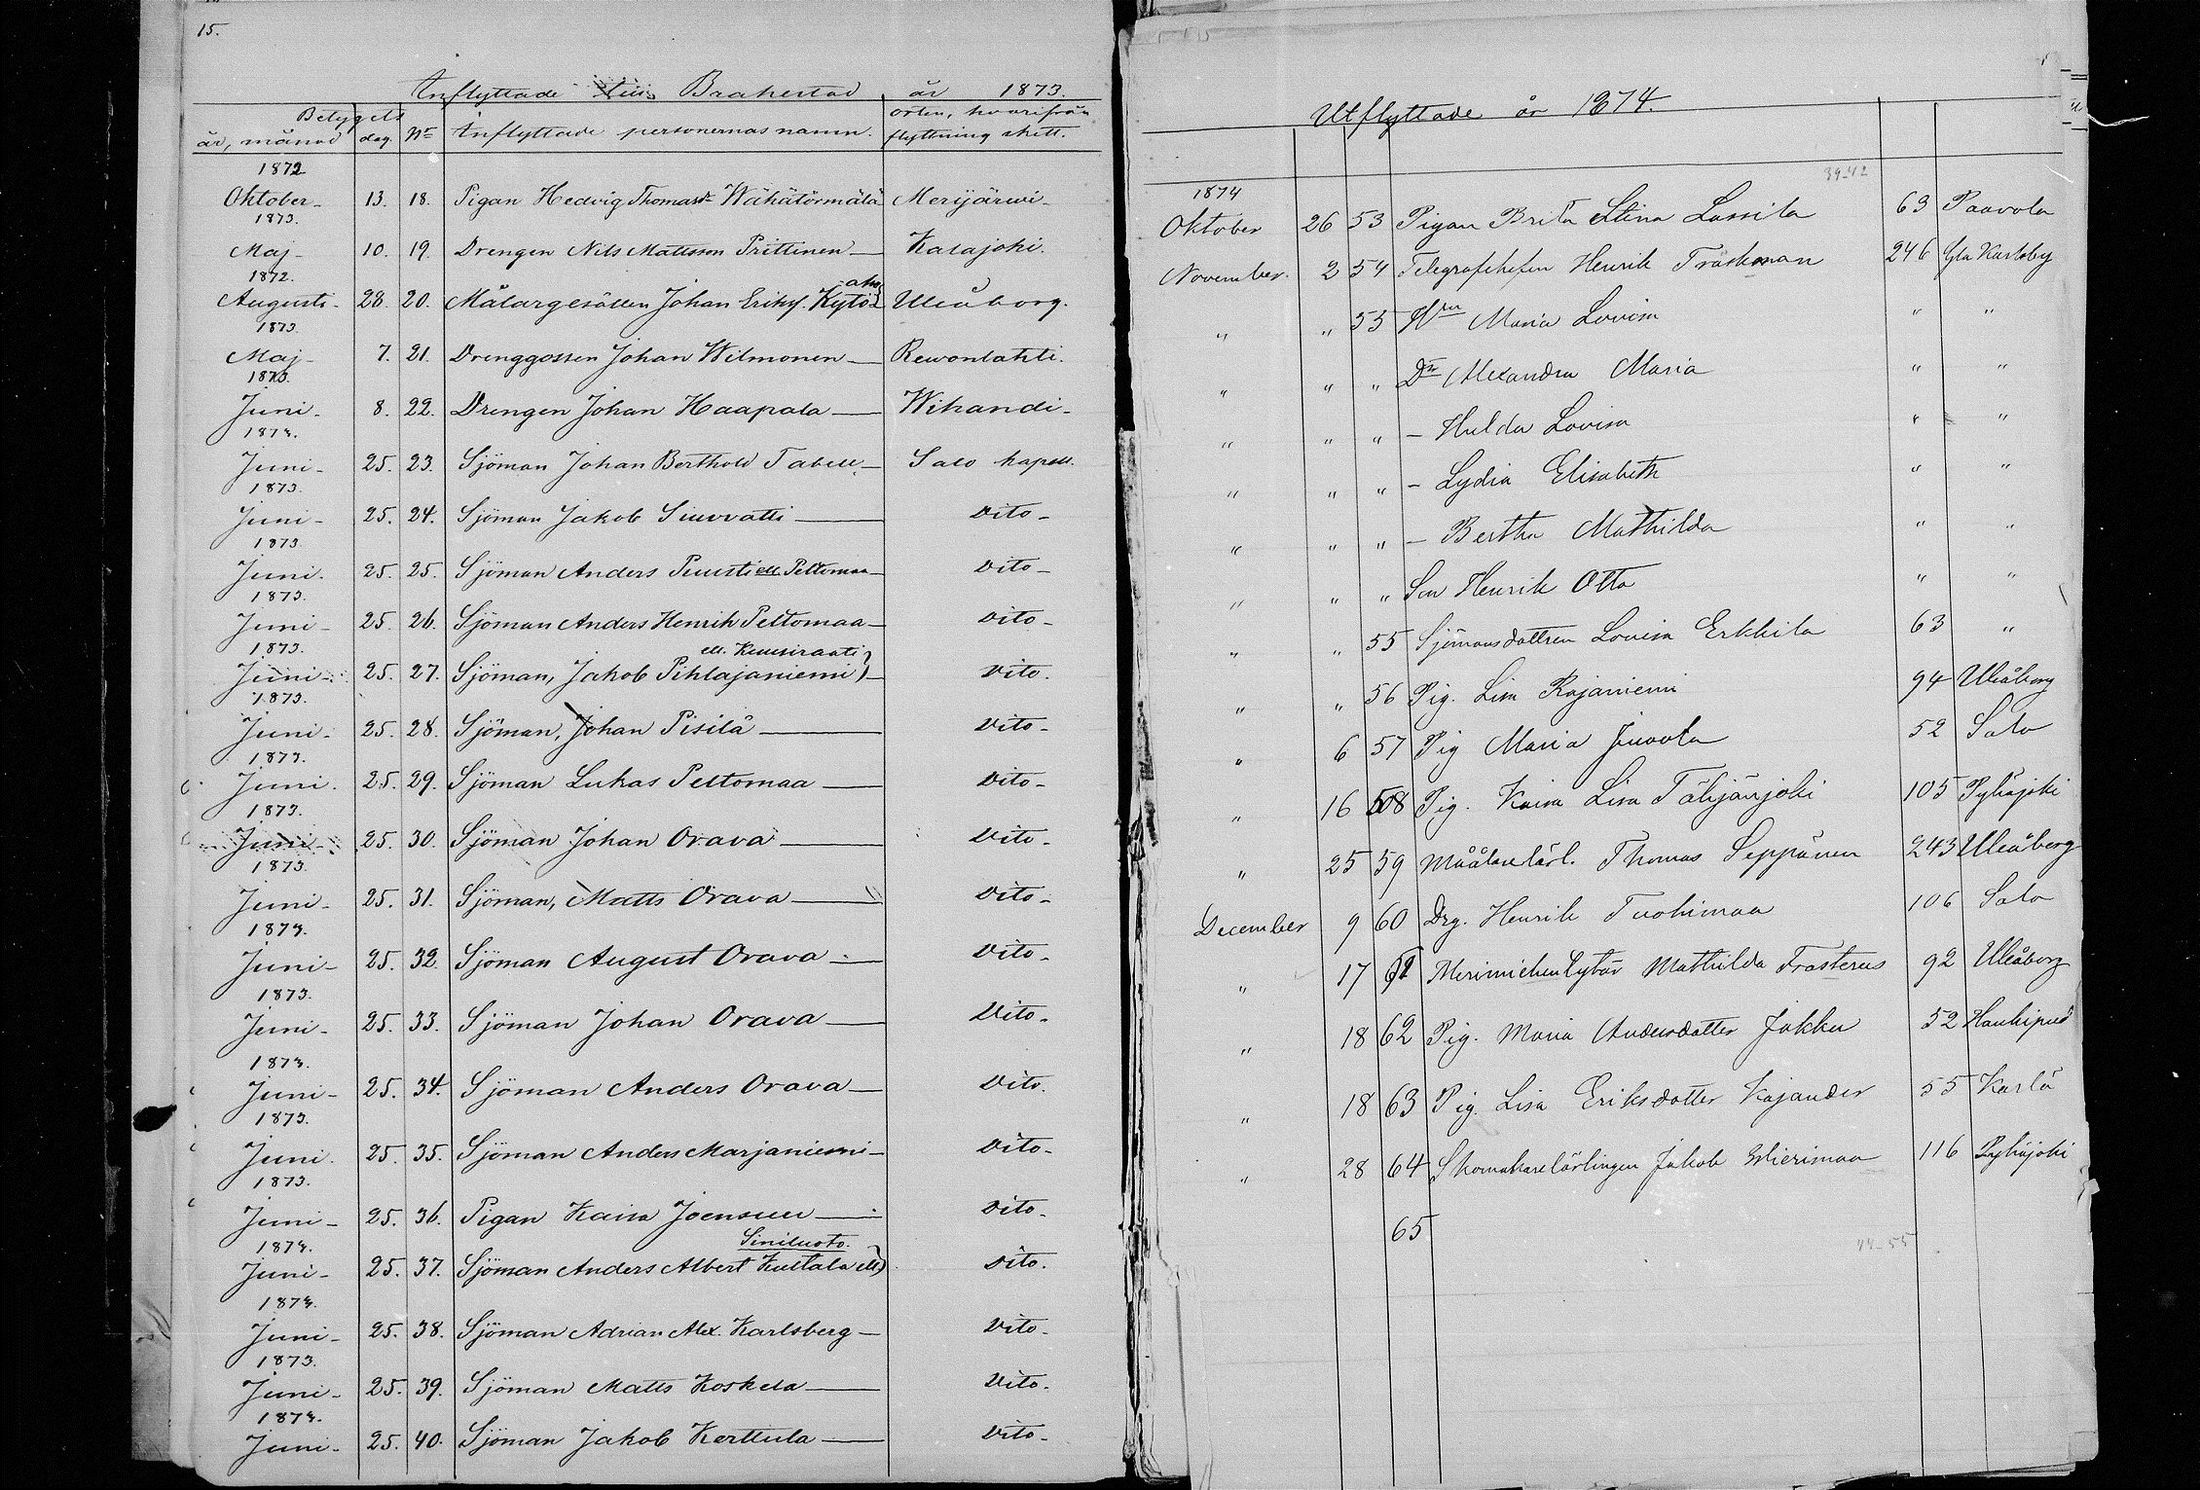 15.
Inflyttade till Brahestad år 1873.
Betygets
år, månad dag. No Inflyttade personernas namn. orten, hvarifrån flyttning skett.
1872
Oktober - 13. 18. Pigan Hedvig Thomasdr Wähätörmälä Merijärvi -
1873.
Maj - 10. 19. Drengen Nils Mattsson Prittinen — Kalajoki.
1872.
Augusti - 28. 20. Målargesällen Johan Eriksf. Kytö Uleåborg.
1873.
Maj - 7. 21. Drenggossen Johan Wilmonen — Rewonlahti.
1873.
Juni - 8. 22. Drengen Johan Haapala — Wihandi -
1873.
Juni - 25. 23. Sjöman Johan Berthold Tabell — Salo kapell.
1873.
Juni - 25. 24. Sjöman Jakob Siuvvatti — dito -
1873.
Juni. 25. 25. Sjöman Anders Puusti ell. Peltomaa — dito -
1873.
Juni - 25. 26. Sjöman Anders Henrik Peltomaa — dito -
1873. ell. Kuusiraati
Juni - 25. 27. Sjöman, Jakob Pihlajaniemi — dito.
1873.
Juni - 25. 28. Sjöman, Johan Pisilä — dito -
1873.
Juni. 25. 29. Sjöman Lukas Peltomaa — dito -
1873.
Juni - 25. 30. Sjöman Johan Orava — dito -
1873.
Juni - 25. 31. Sjöman, Matts Orava — dito -
1873.
Juni - 25. 32. Sjöman August Orava — dito -
1873.
Juni - 25. 33. Sjöman Johan Orava — dito -
1873.
Juni - 25. 34. Sjöman Anders Orava — dito.
1873.
Juni. 25. 35. Sjöman Anders Marjaniemi — dito -
1873.
Juni - 25. 36. Pigan Kaisa Joensuu — dito -
1873. Siniluoto.
Juni - 25. 37. Sjöman Anders Albert Kultala ell) dito.
1873.
Juni - 25. 38. Sjöman Adrian Alex. Karlsberg — dito -
1873.
Juni - 25. 39. Sjöman Matts Koskela — dito -
1873.
Juni - 25. 40. Sjöman Jakob Kerttula — dito -
Utflyttade år 1874.
39-42
1874
Oktober 26 53 Pigan Brita Stina Lassila 63 Paavola
November. 2 54 Telegrafchefen Henrik Träskman 246 Gla Karleby
" " 55 Hru Maria Lovisa " "
" " " Dr Alexandra Maria " "
" " " - Hulda Lovisa " "
" " " - Lydia Elisabeth " "
" " " - Bertha Mathilda " "
" " " Son Henrik Otto " "
" " 55 Sjömansdottren Lovisa Erkkila 63 "
" " 56 Pig. Lisa Rajaniemi 94 Uleåborg
" 6 57 Pig Maria Juvola 52 Salo
" 16 58 Pig. Kaisa Lisa Tähjänjoki 105 Pyhäjoki
" 25 59 Måålarelärl. Thomas Seppänen 243 Uleåborg
December 9 60 Drg. Henrik Tuohimaa 106 Salo
" 17 61 Mathilda Frosterus 92 Uleåborg
" 18 62 Pig. Maria Andersdotter Jakku 52 Haukipud
" 18 63 Pig. Lisa Eriksdotter Kajander 55 Karlö
" 28 64 Skomakarelärlingen Jakob Mierimaa 116 Pyhäjoki
65
44-55